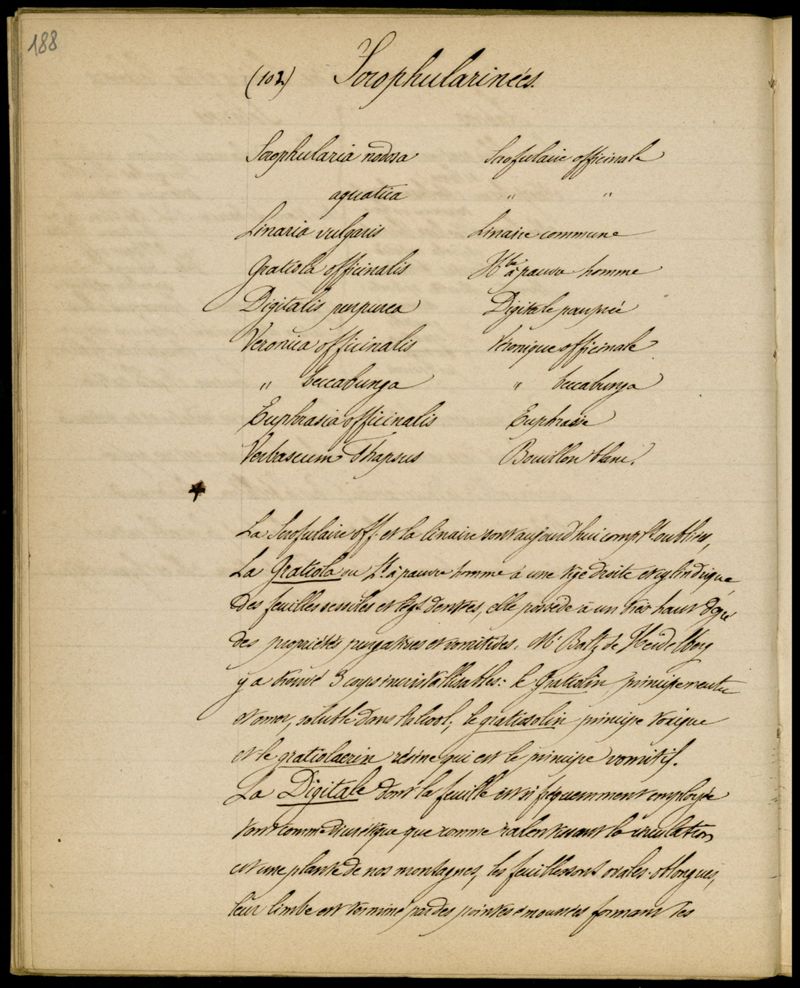 188
(102) Scrophularinées.
Scrophularia nodosa Scrofulaire officinale
aquatica " "
Linaria vulgaris Linaire commune
Gratiola officinalis Hbe à pauvre homme
Digitalis purpurea Digitale pourprée
Veronica officinalis Véronique officinale
" beccabunga " beccabunga
Euphrasia officinalis Euphraise
Verbascum Thapsus Bouillon blanc.
La Scrofulaire off. et la linaire sont aujourd'hui complt oubliées,
La Gratiola ou Hbe à pauvre homme à une tige droite et cylindrique
des feuilles sessiles et légt dentées, elle possède à un très haut degré
des propriétés purgatives et vomitives. Mr de Heidelberg
y a trouvé 3 corps incristallisables: le Gratiolin principe neutre
et amer, soluble dans l'alcool; le gratiosolin principe toxique
et le gratiolacrin résine qui est le principe vomitif.
La Digitale dont la feuille est si fréquemment employée
tant comme diurétique que comme ralentissant la circulation
est une plante de nos montagnes, les feuilles sont ovales-oblongues,
leur limbe est terminé par des pointes émoussées formant des